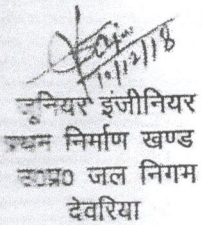 10/12/18
जूनियर इंजीनियर
निर्माण खण्ड
उ0प्र0 जल निगम
देवरिया